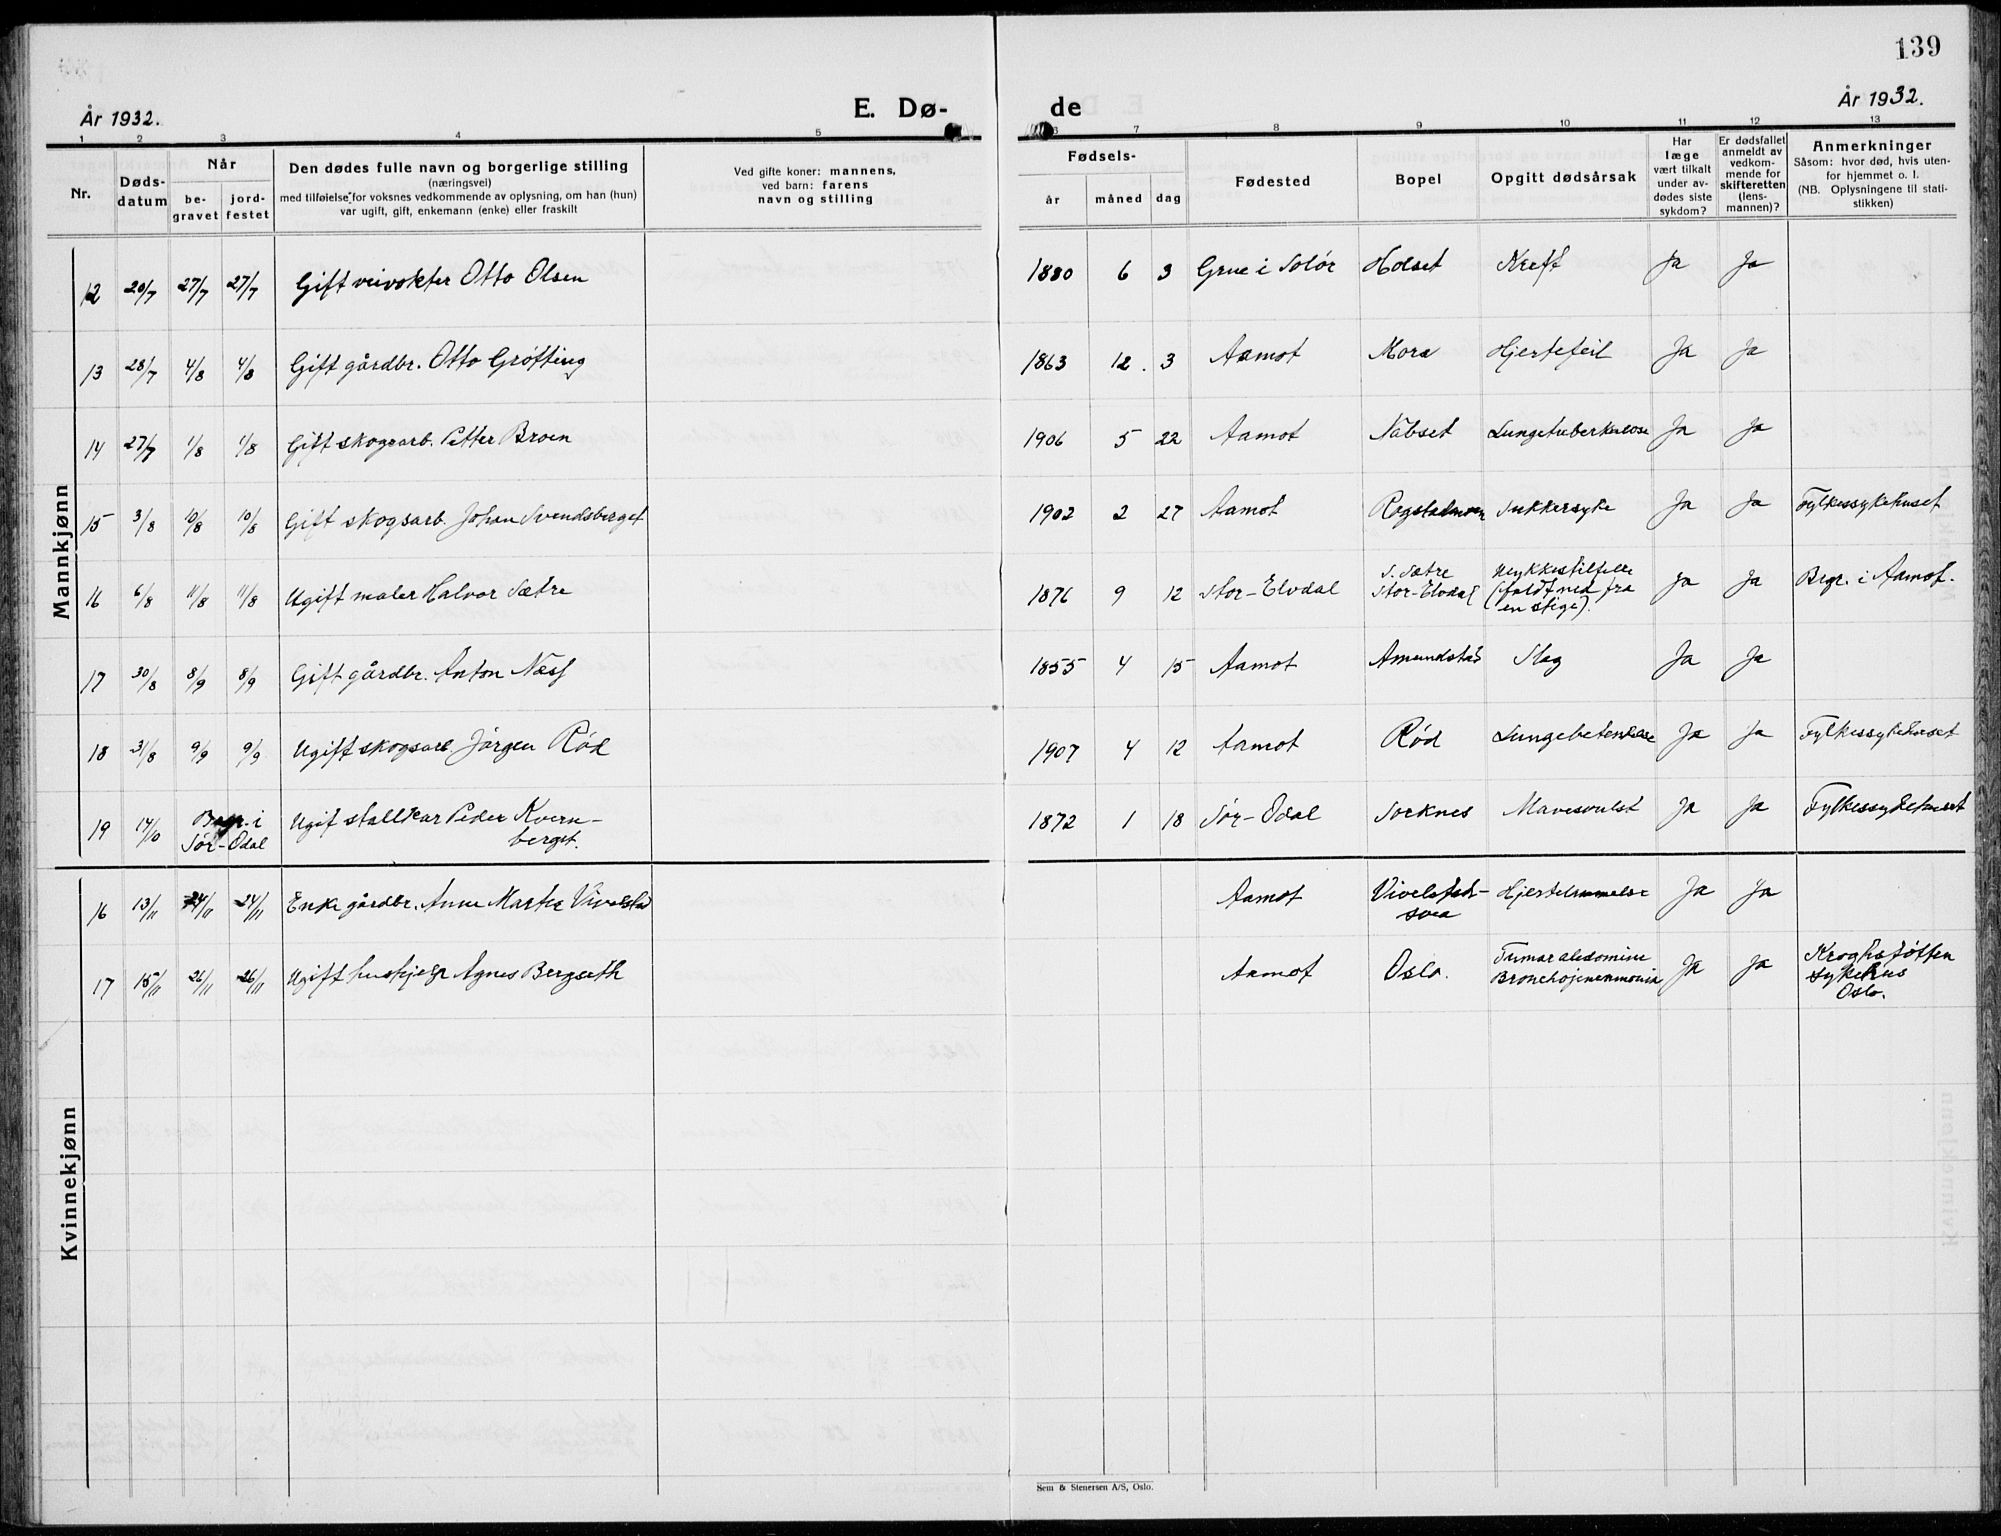 139
År 1932. E. Dø- de År 1932.
1 2 3 4 5 6 7 8 9 10 11 12 13
Nr.
Døds-
datum
Når
be-
gravet
jord-
festet
Den dødes fulle navn og borgerlige stilling
(næringsvei)
med tilføielse for voksnes vedkommende av oplysning, om han (hun)
var ugift, gift, enkemann (enke) eller fraskilt
Ved gifte koner: mannens,
ved barn: farens
navn og stilling
Fødsels-
år måned dag
Fødested
Bopel
Opgitt dødsårsak
Har
læge
vært tilkalt
under av-
dødes siste
sykdom?
Er dødsfallet
anmeldt av
vedkom-
mende for
skifteretten
(lens-
mannen)?
Anmerkninger
Såsom: hvor død, hvis uten-
for hjemmet o. l.
(NB. Oplysningene til stati-
stikken)
Mannkjønn
12 20/7 27/7 27/7 Gift veivokter Otto Olsen 1880 6 3 Grue i Solør Holset Kreft Ja Ja
13 28/7 4/8 4/8 Gift gårdbr. Otto Grøtting 1863 12 3 Aamot Mora Hjertefeil Ja Ja
14 27/7 1/8 1/8 Gift skogsarb. Petter Broen 1906 5 22 Aamot Nabset Lungetuberkulose Ja Ja
15 3/8 10/8 10/8 Gift skogsarb. Johan Svendsberget 1902 2 27 Aamot Rogstadmoen Sukkersyke Ja Ja Fylkessykehuset
16 6/8 11/8 11/8 Ugift maler Halvor Sætre 1876 9 12 Stor-Elvdal S. Sætre
Stor-Elvdal Ulykkestilfelle
(faldt ned fra
en stige). Ja Ja Begr. i Aamot.
17 30/8 8/9 8/9 Gift gårdbr. Anton Næss 1855 4 15 Aamot Amundstad Slag Ja Ja
18 31/8 9/9 9/9 Ugift skogsarb. Jørgen Rød 1907 4 12 Aamot Rød Lungebetendelse Ja Ja Fylkessykehuset
19 14/10 Begr. i
Sør-Odal Ugift stallkar Peder Kvern-
berget. 1872 1 18 Sør-Odal Sorknes Mavesvulst Ja Ja Fylkessykehuset
Kvinnekjønn
16 13/11 24/11 24/11 Enke gårdbr. Anne Marthe Vivelstad Aamot Vivelstad-
svea Hjertelammelse Ja Ja
17 15/11 26/11 26/11 Ugift hushjelp Agnes Bergseth Aamot Oslo. Tumor abdomine
Bronchopneumonia Ja Ja Kroghstøtten
sykehus
Oslo.
Sem & Stenersen A/S, Oslo.